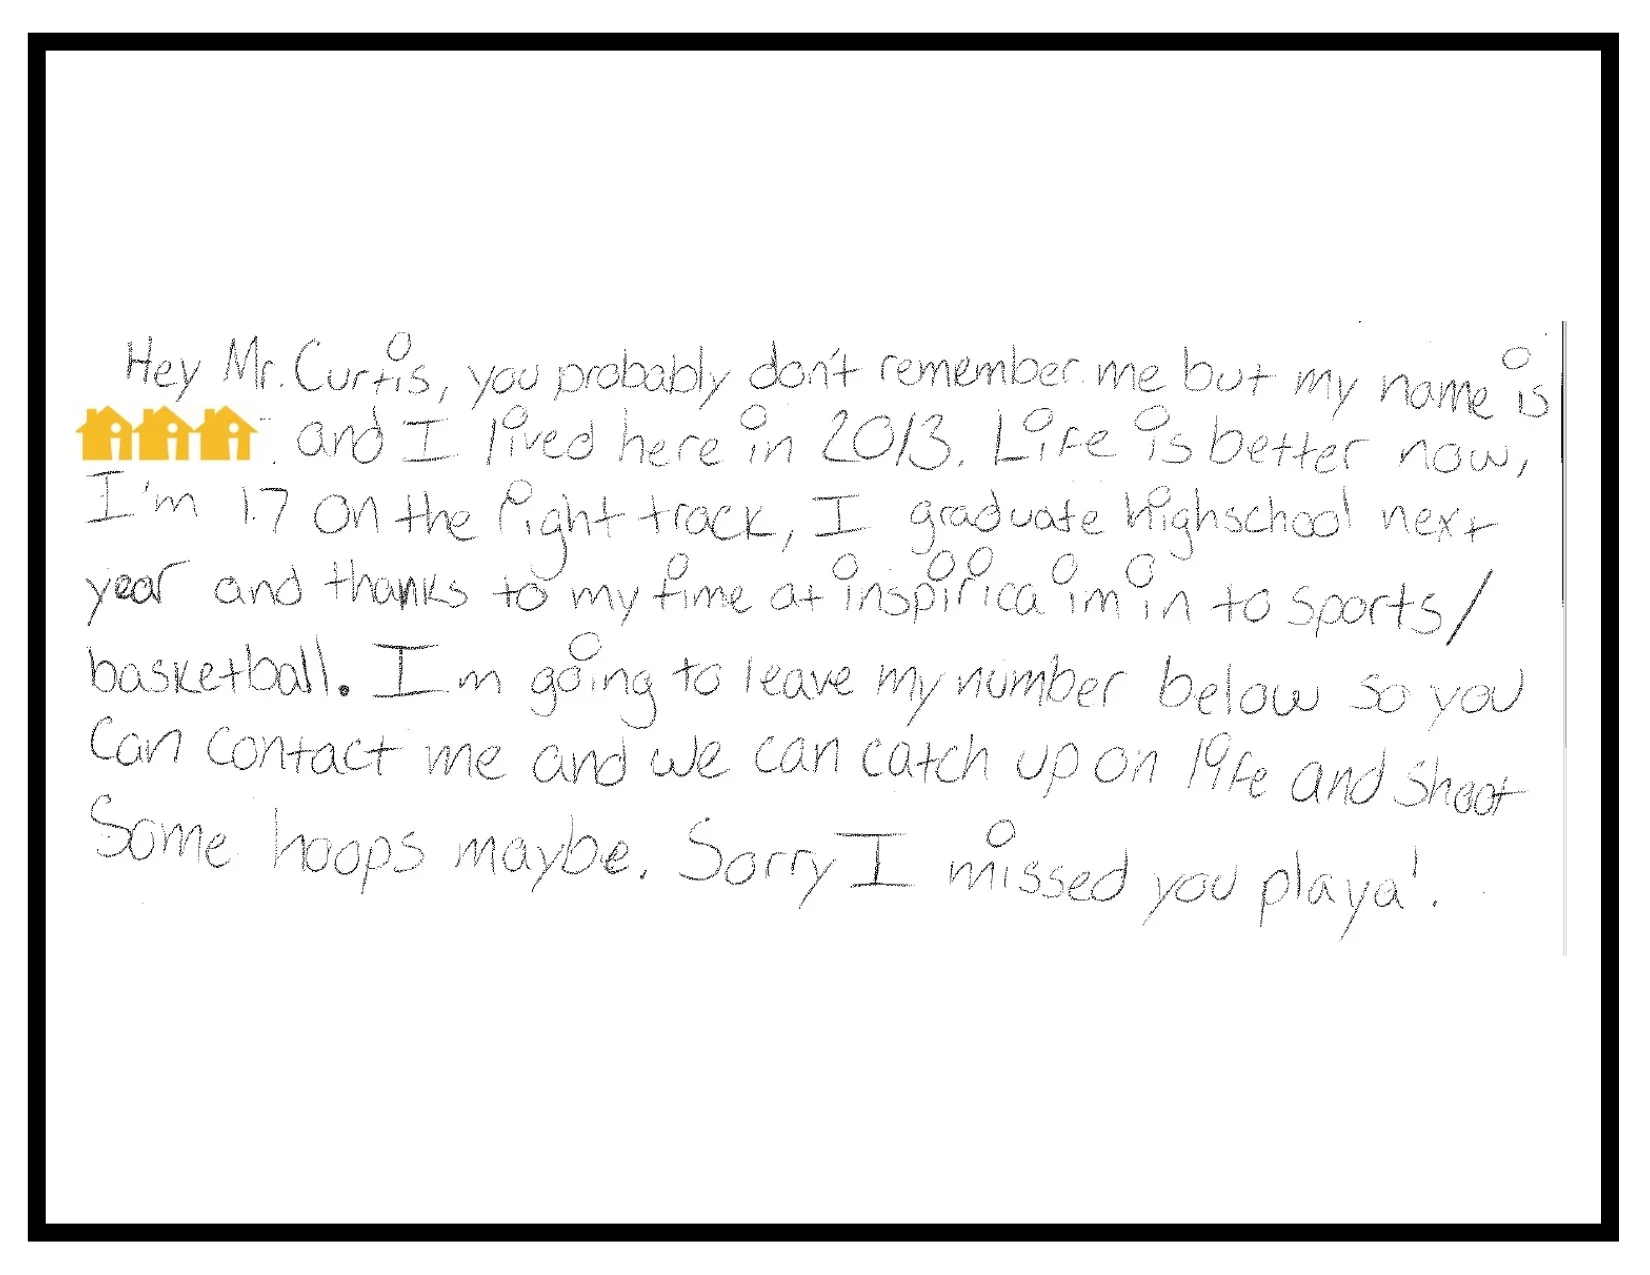 Hey Mr. Curtis, you probably don't remember me but my name is
and I lived here in 2013. Life is better now,
I'm 17 on the right track, I graduate highschool next
year and thanks to my time at inspirica im in to sports/
basketball. I'm going to leave my number below so you
Can contact me and we can catch up on life and shoot
Some hoops maybe. Sorry I missed you playa!